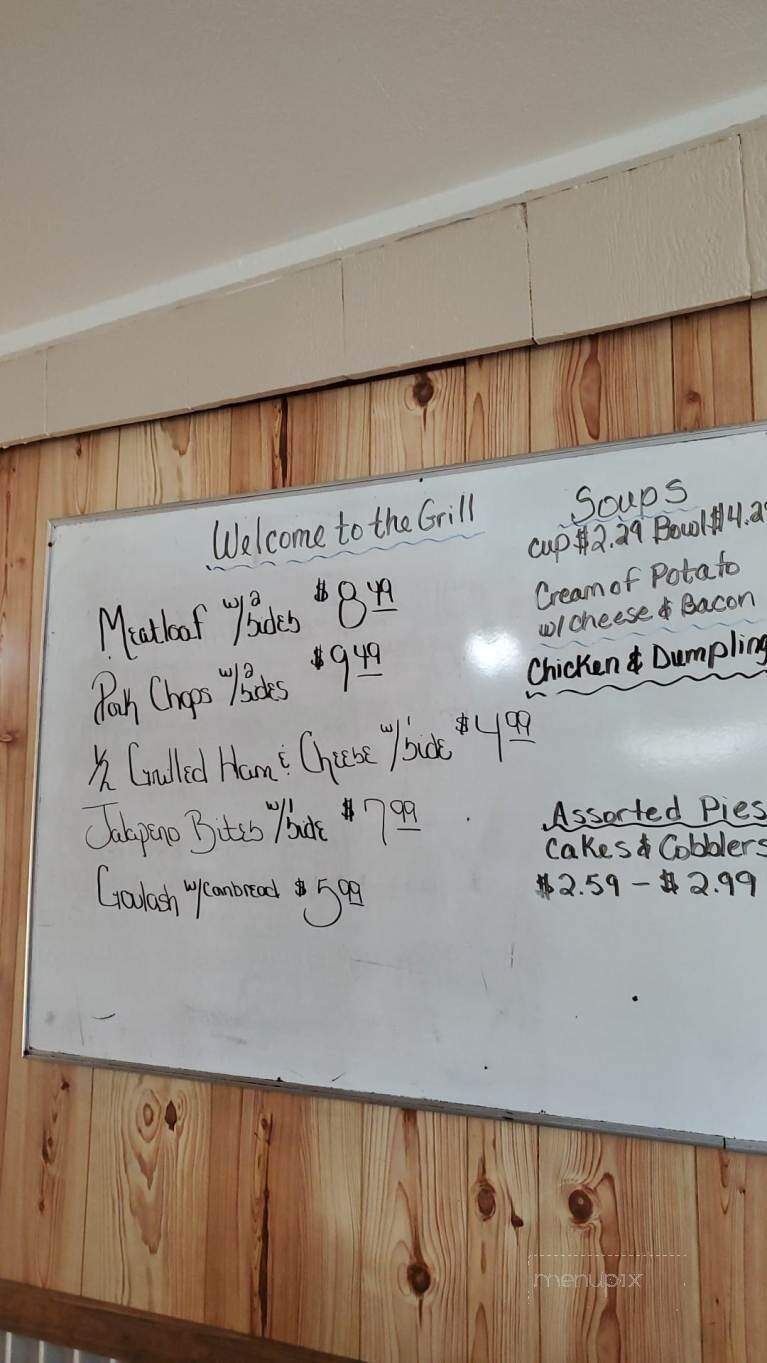 Welcome to the Grill
Meatloaf w/2 sides $8.49
Pork Chops w/2 sides $9.49
1/2 Grilled Ham & Cheese w/1 side $4.99
Jalapeno Bites w/1 side $7.99
Goulash w/cornbread $5.99
Soups
cup $2.29 Bowl $4.2
Cream of Potato
w/ cheese & Bacon
Chicken & Dumpling
Assorted Pies
Cakes & Cobblers
$2.59 – $2.99
menupix